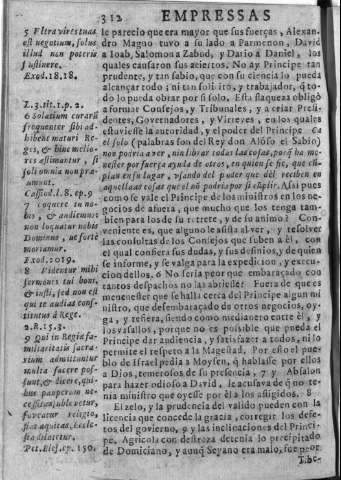 312 EMPRESSAS
le parecio que era mayor que sus fuerças, Alexan-
dro Magno tuvo a su lado a Parmenon, David
a Ioab, Salomon a Zabud, y Dario a Daniel, los
quales causaron sus aciertos. No ay Principe tan
prudente, y tan sabio, que con su ciencia lo pueda
alcançar todo; ni tan solicito, y trabaxador, q̃ to-
do lo pueda obrar por si solo. Esta flaqueza obligò
a formar Consejos, y Tribunales, y a criar Presi-
dentes, Governadores, y Virreyes, en los quales
estuviesse la autoridad, y el poder del Principe Ca
el solo (palabras son del Rey don Alõso el Sabio)
non podria ver, nin librar todas las cosas, por q̃ ha me-
nester por fuerça ayuda de otros, en quien se fie, que cũ-
plan en su lugar, vsando del poder que dèl reciben en
aquellas cosas que el nõ podria por si cũplir. Assi pues
como se vale el Principe de los ministros en los ne-
gocios de afuera, que mucho que los tenga tam-
bien para los de su retrete, y de su animo? Con-
veniente es, que alguno le assista al ver, y resolver
las consultas de los Consejos que suben à èl, con
el qual confiera sus dudas, y sus desinios, y de quien
se informe, y se valga para la expedicion, y execu-
cion dellos. 6 No seria peor que embaraçado con
tantos despachos no las abriesse? Fuera de que es
menester que se halle cerca del Principe algun mi-
nistro, que desembaraçado de otros negocios, oy-
ga, y refiera, siendo como medianero entre èl, y
los vassallos, porque no es possible que pueda el
Principe dar audiencia, y satisfazer a todos, ni lo
permite el respeto a la Magestad. Por esso el pue-
blo de Israel pedia a Moysen, q̃ hablasse por ellos
a Dios, temerosos de su presencia, 7 y Absalon
para hazer odioso a David, le acusava de q̃ no te-
nia ministro que oyesse por èl a los afligidos. 8
El zelo, y la prudencia del valido pueden con la
licencia que concede la gracia, corregir los defe-
tos del govierno, 9 y las inclinaciones del Princi-
pe. Agricola con destreza detenia lo precipitado
de Domiciano, y aunq̃ Seyano era malo, fue peor
5 Vltra vires tuas
est negotium, solus
illud non poteris
sustinere.
Exod. 18. 18.
L. 3. tit. 1. p. 2.
6 Solatium curarũ
frequenter sibi ad-
hibent maturi Re-
ges, & hinc melio-
res æstimantur, si
soli omnia non præ-
sumunt.
Cassiod. l. 8. ep. 9
7 Loquere tu no-
bis, & audiemus:
non loquatur nobis
Dominus, ne fortè
moriamur.
Exod. 20. 19.
8 Videntur mihi
sermones tui boni,
& iusti, sed non est
qui te audiat cons-
titutus à Rege.
2. R. 15. 3.
9 Qui in Regia fa-
miliaritatis sacra-
rium admittuntur
multa facere pos-
sunt, & dicere, qui-
bus pauperum ne-
cessitas sublevetur,
foveatur religio,
fiat æquitas, Eccle-
sia dilatetur.
Pet. Bles. ep. 150.